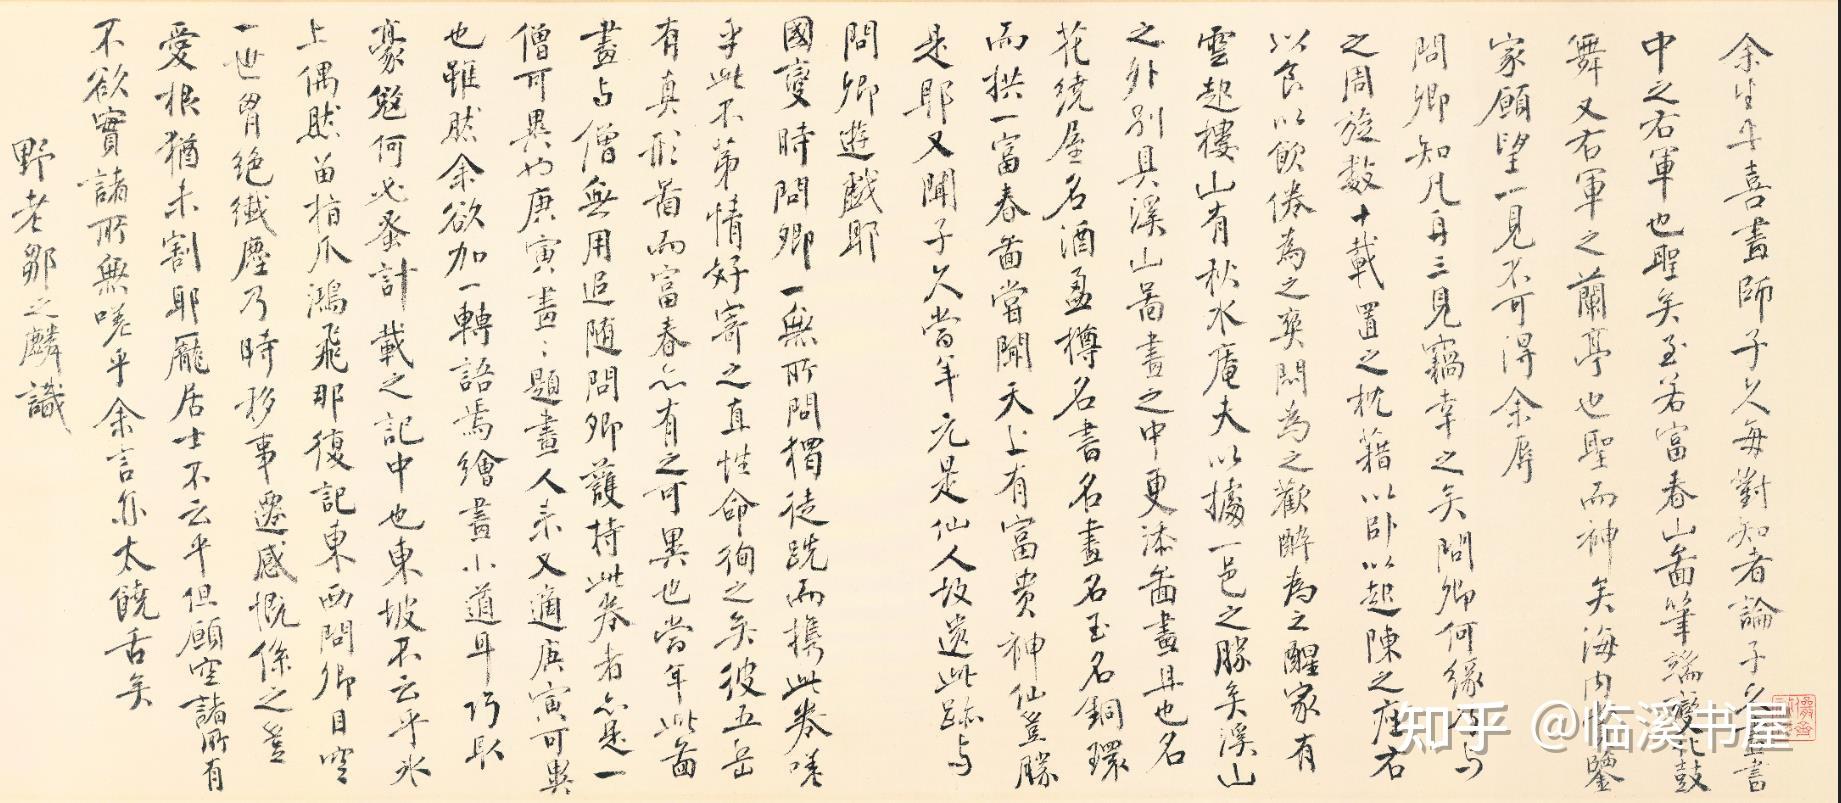 余生平喜畫師子久每對知者論子久畫書
中之右軍也聖矣至若富春山啚筆端變化鼓
舞又右軍之蘭亭也聖而神矣海內賞鑒
家願望一見不可得余辱
問卿知凡再三見竊幸之矣問卿何緣乃与
之周旋数十載置之枕藉以卧以起陳之座右
以食以飲倦為之爽悶為之歡醉為之醒家有
雲起樓山有秋水庵夫以據一邑之勝矣溪山
之外別具溪山啚畫之中更添啚畫且也名
花繞屋名酒盈樽名書名畫名玉名銅環
而拱一富春啚當聞天上有富貴神仙豈勝
是耶又聞子久當年元是仙人故遺此跡与
問卿遊戯耶
國變時問卿一無所問獨徒跣而携此卷嗟
乎此不第情好寄之直性命徇之矣彼五岳
有真形啚而富春亦有之可異也當年此啚
畫与僧無用追随問卿護持此卷者亦是一
僧可異也庚寅畫:題畫人來又適庚寅可異
也雖然余欲加一轉語焉繪畫小道耳巧取
豪奪何必蚤計載之記中也東坡不云乎氷
上偶然留指爪鴻飛那復記東西問卿目空
一世胷絕纖塵乃時移事遷感慨係之豈
愛根猶未割耶龐居士不云乎但願空諸所有
不欲實諸所無嗟乎余言亦太饒舌矣
野老鄒之麟識
知乎 @临溪书屋